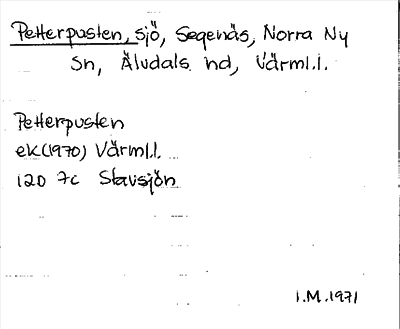 Petterpusten, sjö, Segenäs, Norra Ny
Sn, Älvdals hd, Värml.l.
Petterpusten
ek(1970) Värml.l.
12D 7c Stavsjön
I.M.1971